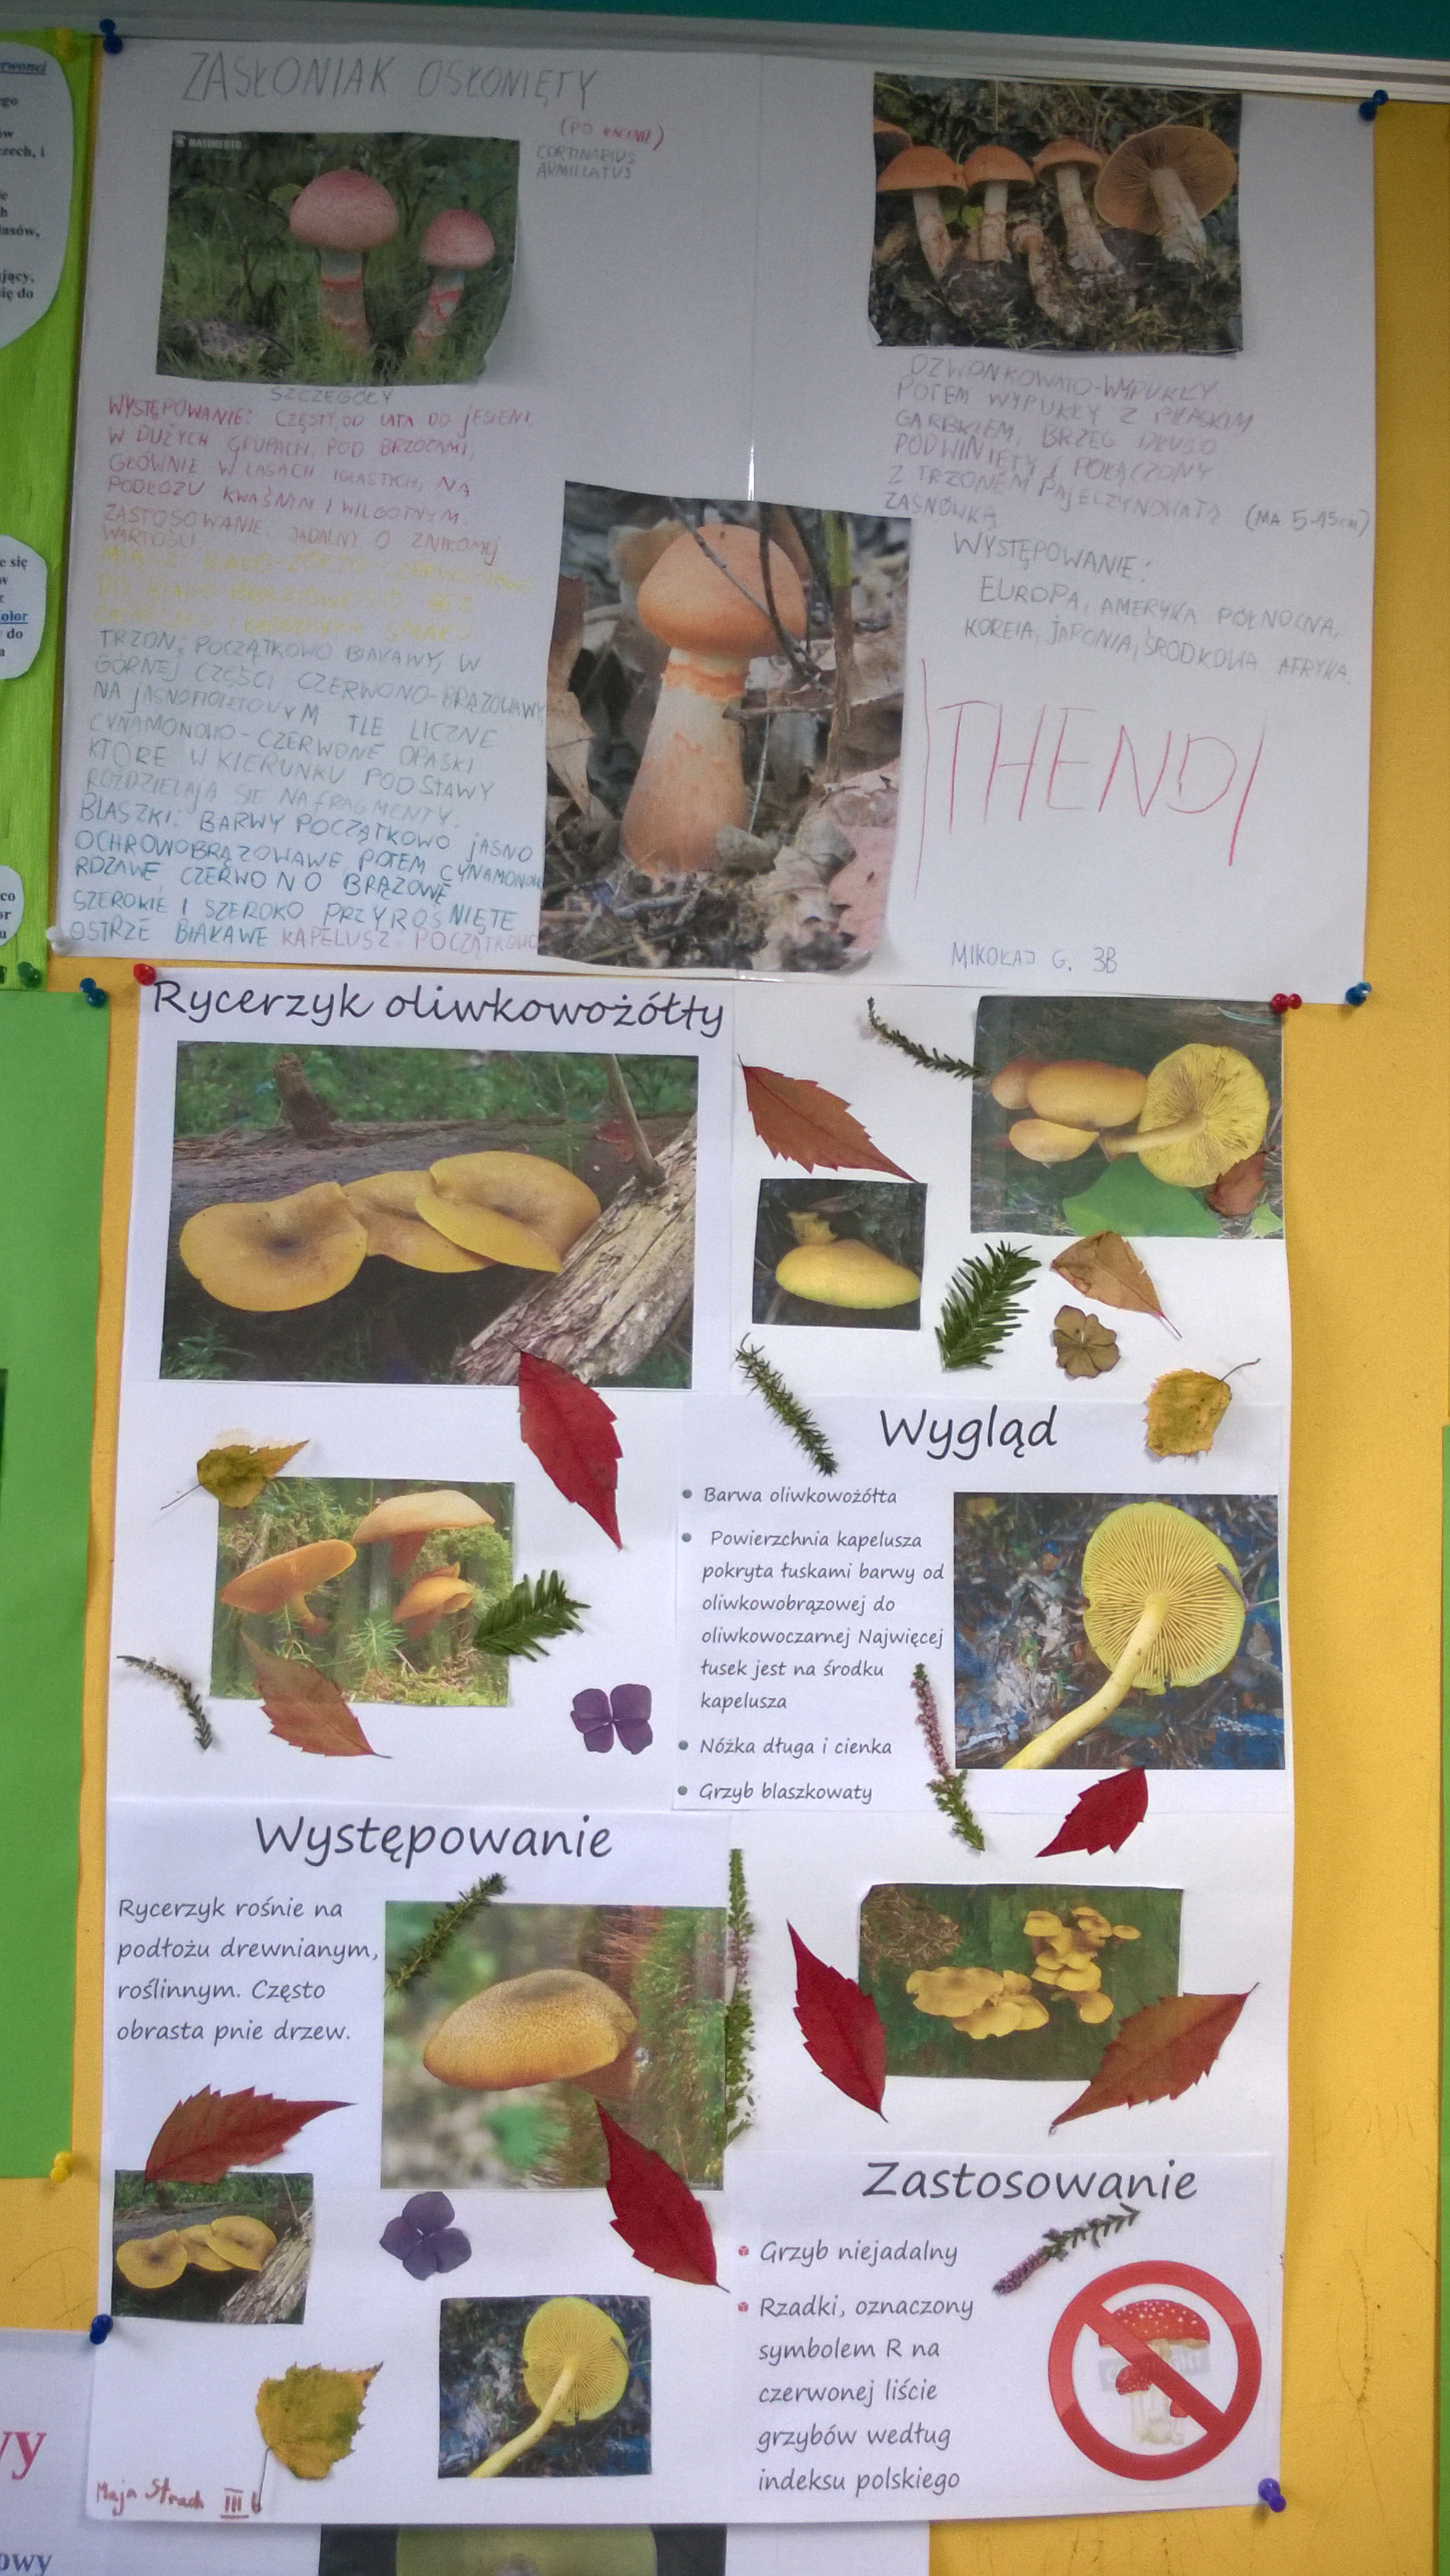 ZASŁONIAK OSŁONIĘTY
(PO ŁACINIE)
CORTINARIUS
ARMILLATUS
SZCZEGÓŁY
WYSTĘPOWANIE: CZĘSTY, OD LATA DO JESIENI,
W DUŻYCH GRUPACH, POD BRZOZAMI,
GŁÓWNIE W LASACH IGLASTYCH, NA
PODŁOŻU KWAŚNYM I WILGOTNYM.
ZASTOSOWANIE: JADALNY O ZNIKOMEJ
WARTOŚCI
TRZON: POCZĄTKOWO BIAŁAWY, W
GÓRNEJ CZĘŚCI CZERWONO-BRĄZOWAWY
NA JASNOFIOLETOWYM TLE LICZNE
CYNAMONOWO-CZERWONE OPASKI
KTÓRE W KIERUNKU PODSTAWY
ROZDZIELAJĄ SIĘ NA FRAGMENTY.
BLASZKI: BARWY POCZĄTKOWO JASNO
OCHROWOBRĄZOWAWE POTEM CYNAMONOWO
RDZAWE CZERWONO BRĄZOWE
SZEROKIE I SZEROKO PRZYROŚNIĘTE
OSTRZE BIAŁAWE KAPELUSZ: POCZĄTKOWO
DZWONKOWATO-WYPUKŁY
POTEM WYPUKŁY Z PŁASKIM
GARBKIEM, BRZEG DŁUGO
PODWINIĘTY I POŁĄCZONY
Z TRZONEM PAJĘCZYNOWATĄ
ZASNÓWKĄ (MA 5-15cm)
WYSTĘPOWANIE:
EUROPA, AMERYKA PÓŁNOCNA,
KOREIA, JAPONIA, ŚRODKOWA AFRYKA.
THEND
MIKOŁAJ G. 3B
Rycerzyk oliwkowożółty
Wygląd
• Barwa oliwkowożółta
• Powierzchnia kapelusza
pokryta łuskami barwy od
oliwkowobrązowej do
oliwkowoczarnej Najwięcej
łusek jest na środku
kapelusza
• Nóżka długa i cienka
• Grzyb blaszkowaty
Występowanie
Rycerzyk rośnie na
podłożu drewnianym,
roślinnym. Często
obrasta pnie drzew.
Zastosowanie
Grzyb niejadalny
Rzadki, oznaczony
symbolem R na
czerwonej liście
grzybów według
indeksu polskiego
Maja Strach III b